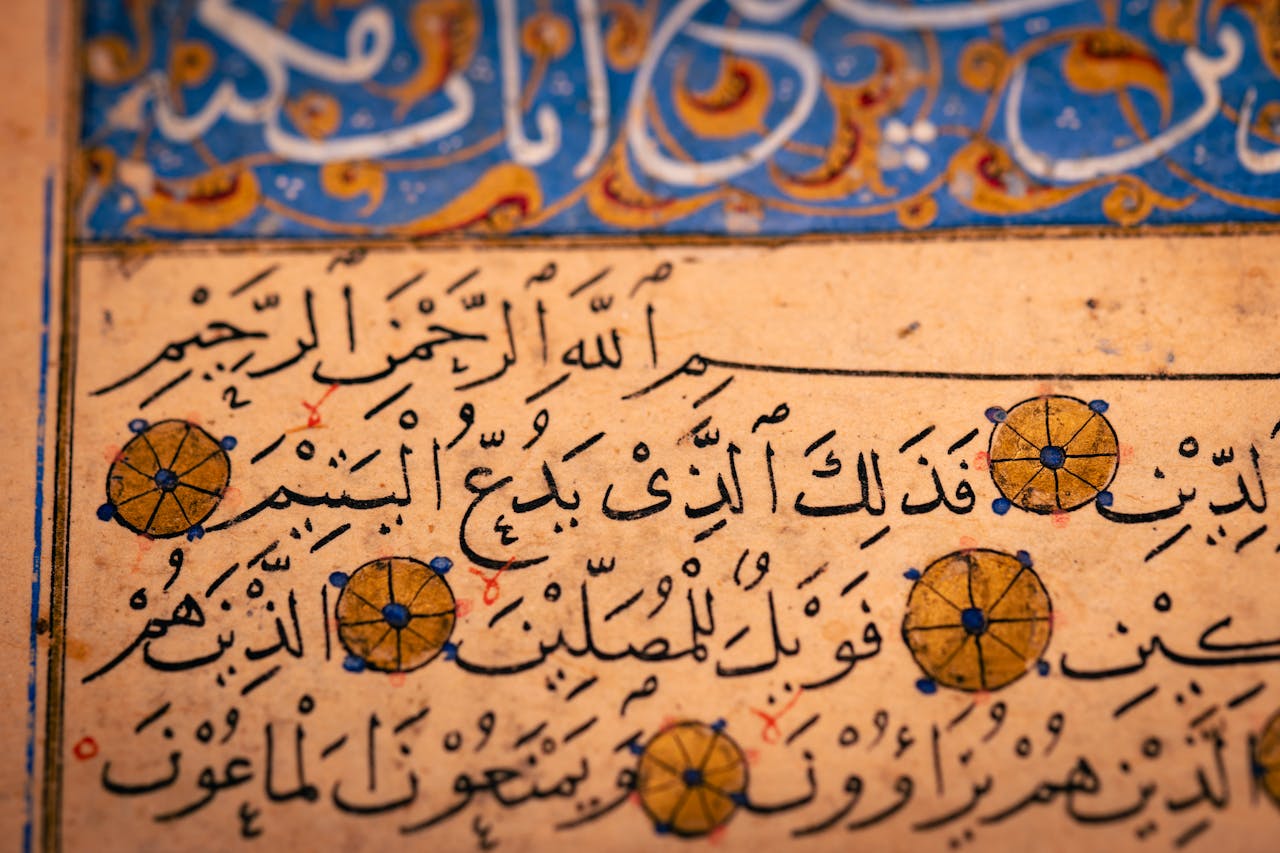 ايات مكية
ـمِ ٱللَّهِ ٱلرَّحْمَنِ ٱلرَّحِيمِ
لدِّيْنِ فَذَلِكَ ٱلَّذِىْ يَدُعُّ الْيَتِيْمَ
ـكِيْنِ فَوَيْلٌ لِلْمُصَلِّيْنَ الَّذِيْنَ هُمْ
الَّذِيْنَ هُمْ يُرَاؤُوْنَ وَيَمْنَعُوْنَ الْمَاعُوْنَ